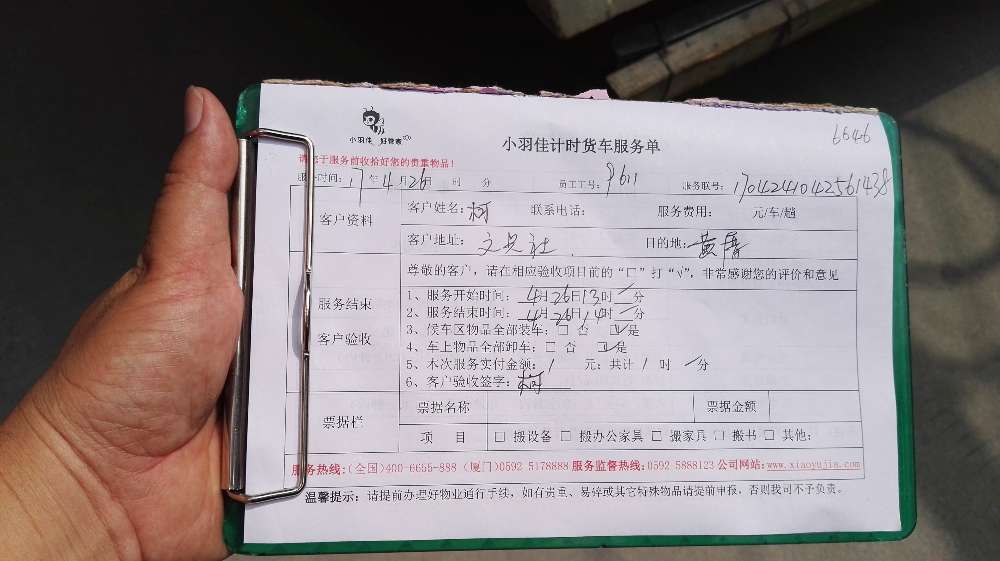 6646
小羽佳 好管家
小羽佳计时货车服务单
请您于服务前收拾好您的贵重物品！
服务时间：17年4月26日 时 分 员工工号：9611 服务联号：17042410425561438
客户资料
客户姓名：柯 联系电话： 服务费用： 元/车/趟
客户地址：文兴社 目的地：黄厝
尊敬的客户，请在相应验收项目前的“□”打“√”，非常感谢您的评价和意见
服务结束
客户验收
1、服务开始时间：4月26日13时 分
2、服务结束时间：4月26日14时 分
3、候车区物品全部装车：□ 否 ☑是
4、车上物品全部卸车：□ 否 ☑是
5、本次服务实付金额：/ 元；共计1 时 分
6、客户验收签字：柯
票据栏
票据名称 票据金额
项 目 □ 搬设备 □ 搬办公家具 □ 搬家具 □ 搬书 □ 其他：
服务热线：（全国）400-6655-888（厦门）0592 5178888 服务监督热线：0592 5888123 公司网站：www.xiaoyujia.com
温馨提示：请提前办理好物业通行手续，如有贵重、易碎或其它特殊物品请提前申报，否则我司不予负责。